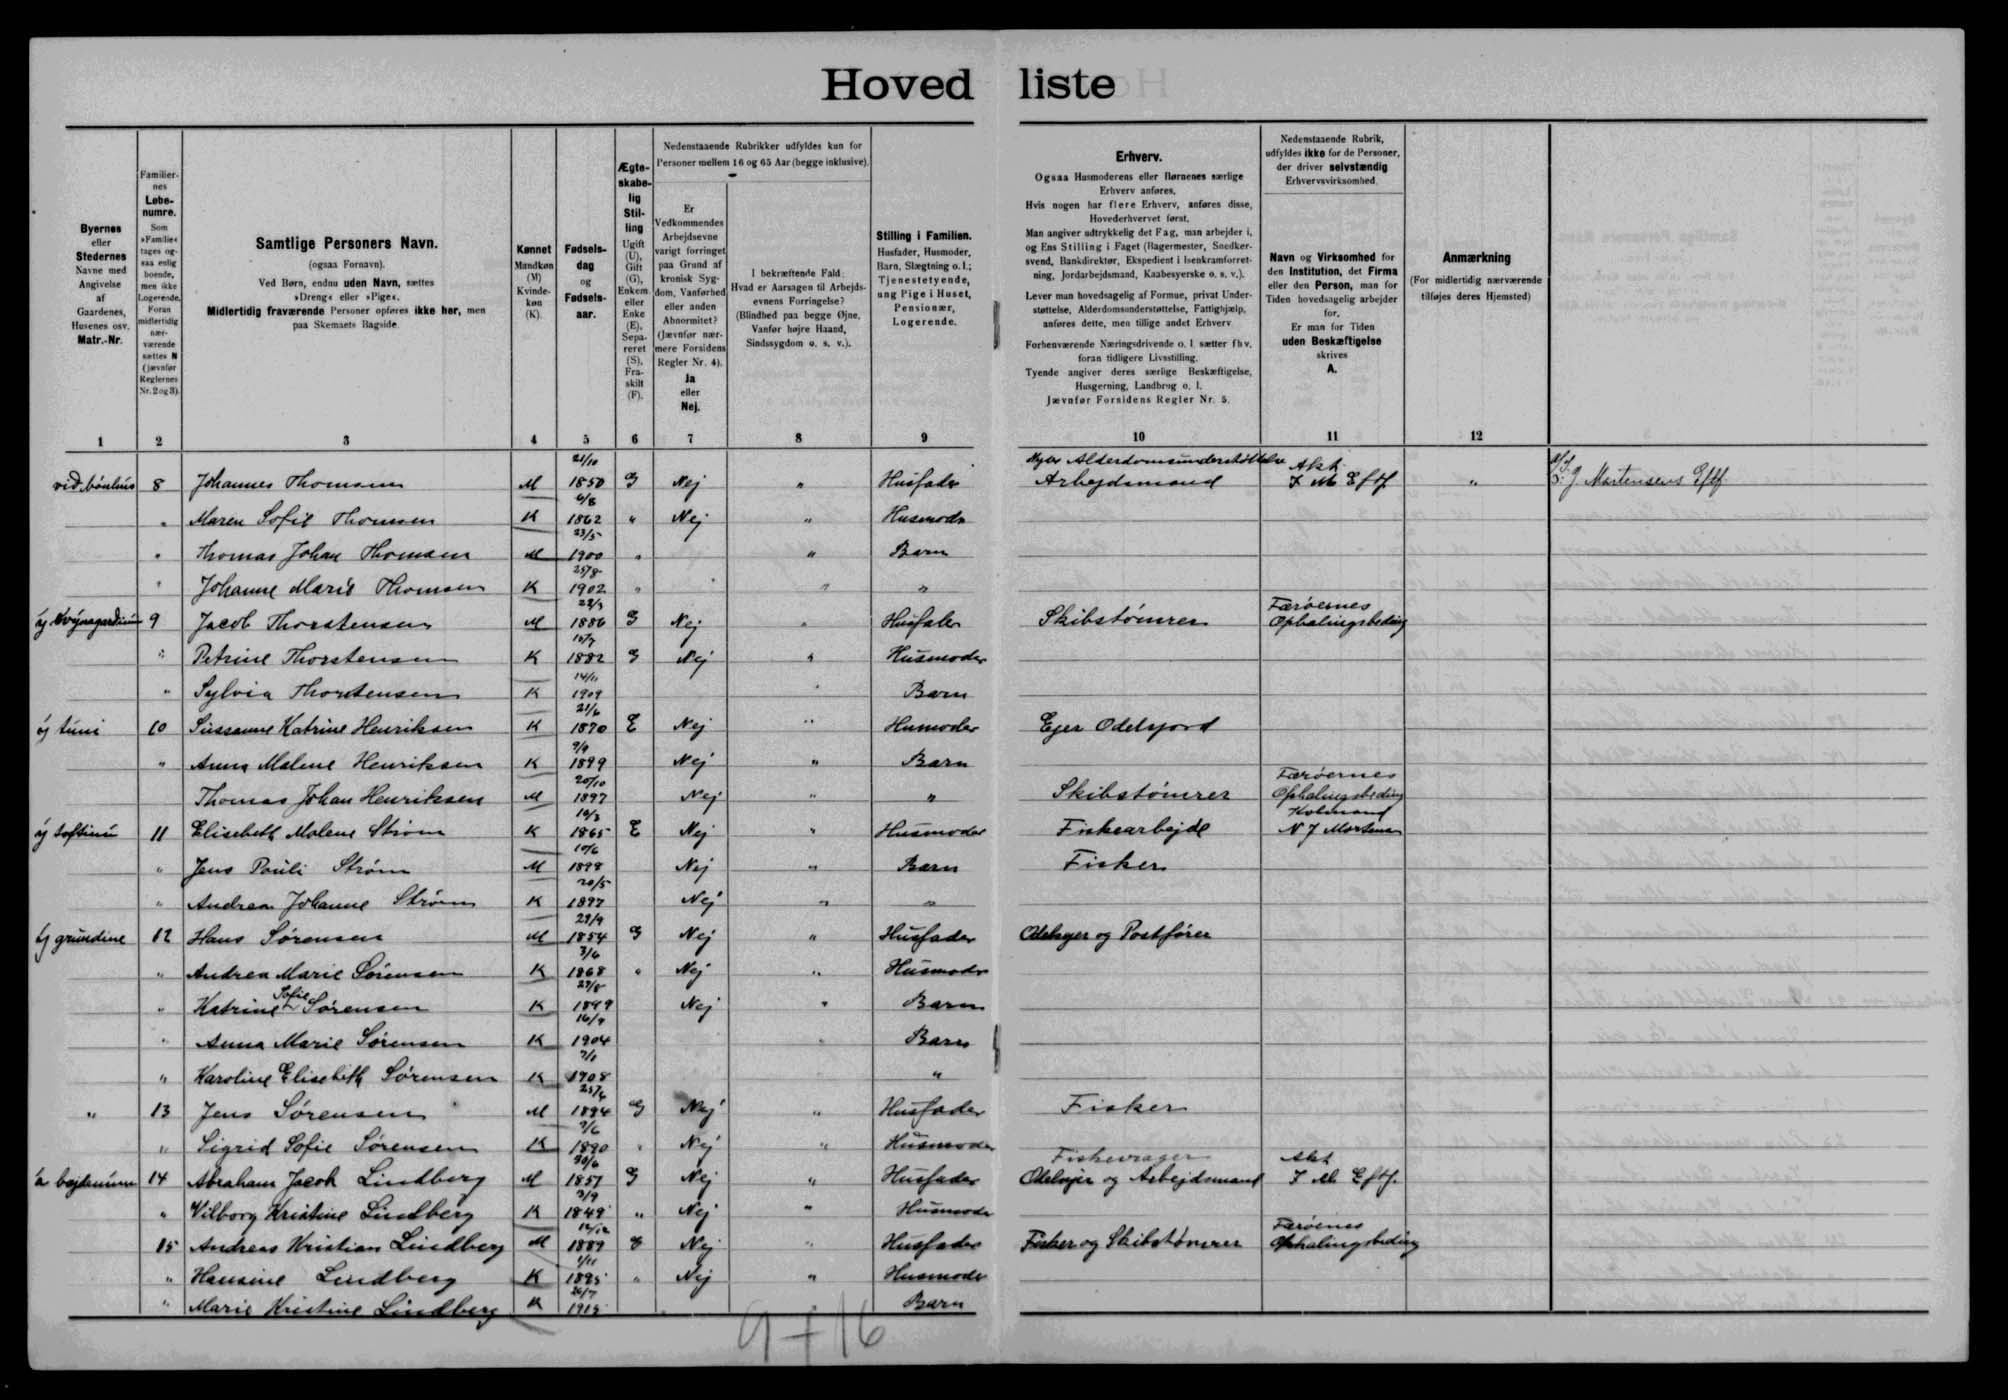 Hovedliste
Byernes eller Stedernes Navne med Angivelse af Gaardenes, Husenes osv. Matr.-Nr.
Familiernes Løbenumre. Som »Familie« tages ogsaa enlig boende, men ikke Logerende. Foran midlertidig nærværende sættes N (jævnfør Reglernes Nr. 2 og 3).
Samtlige Personers Navn. (ogsaa Fornavn). Ved Børn, endnu uden Navn, sættes »Dreng« eller »Pige«. Midlertidig fraværende Personer opføres ikke her, men paa Skemaets Bagside.
Kønnet Mandkøn (M) Kvindekøn (K).
Fødselsdag og Fødselsaar.
Ægteskabelig Stilling Ugift (U), Gift (G), Enkem. eller Enke (E), Separeret (S), Fraskilt (F).
Nedenstaaende Rubrikker udfyldes kun for Personer mellem 16 og 65 Aar (begge inklusive).
Er Vedkommendes Arbejdsevne varigt forringet paa Grund af kronisk Sygdom, Vanførhed eller anden Abnormitet? (Jævnfør nærmere Forsidens Regler Nr. 4). Ja eller Nej.
I bekræftende Fald: Hvad er Aarsagen til Arbejdsevnens Forringelse? (Blindhed paa begge Øjne, Vanfør højre Haand, Sindssygdom o. s. v.).
Stilling i Familien. Husfader, Husmoder, Barn, Slægtning o. l.; Tjenestetyende, ung Pige i Huset, Pensionær, Logerende.
Erhverv. Ogsaa Husmoderens eller Børnenes særlige Erhverv anføres. Hvis nogen har flere Erhverv, anføres disse, Hovederhvervet først. Man angiver udtrykkelig det Fag, man arbejder i, og Ens Stilling i Faget (Bagermester, Snedkersvend, Bankdirektør, Ekspedient i Isenkramforretning, Jordarbejdsmand, Kaabesyerske o. s. v.). Lever man hovedsagelig af Formue, privat Understøttelse, Alderdomsunderstøttelse, Fattighjælp, anføres dette, men tillige andet Erhverv. Forhenværende Næringsdrivende o. l. sætter fhv. foran tidligere Livsstilling. Tyende angiver deres særlige Beskæftigelse, Husgerning, Landbrug o. l. Jævnfør Forsidens Regler Nr. 5.
Nedenstaaende Rubrik, udfyldes ikke for de Personer, der driver selvstændig Erhvervsvirksomhed.
Navn og Virksomhed for den Institution, det Firma eller den Person, man for Tiden hovedsagelig arbejder for. Er man for Tiden uden Beskæftigelse skrives A.
Anmærkning (For midlertidig nærværende tilføjes deres Hjemsted)
1 2 3 4 5 6 7 8 9 10 11 12
við bönhús 8 Johannes Thomsen M 21/10 1850 G Nej " Husfader Nyder Alderdomsunderstøttelse Arbejdsmand Akt. Eftf. " Mortensens Eftf.
" Maren Sofie Thomsen K 6/8 1862 " Nej " Husmoder
" Thomas Johan Thomsen M 23/5 1900 " " Barn
" Johanne Marie Thomsen K 25/8 1902 " " "
9 Jacob Thorstensen M 22/3 1886 G Nej " Husfader Skibstømrer Færøernes Ophalingsbeding
" Petrine Thorstensen K 10/7 1882 G Nej " Husmoder
" Sylvia Thorstensen K 14/11 1909 " Barn
íj túni 10 Sussanne Katrine Henriksen K 21/6 1870 E Nej " Husmoder Ejer Odelsjord
" Anna Malene Henriksen K 9/9 1899 Nej " Barn
Thomas Johan Henriksen M 20/10 1897 Nej " " Skibstømrer Færøernes Ophalingsbeding
íj toftinu 11 Elisebeth Malene Strøm K 10/3 1865 E Nej " Husmoder Fiskearbejde Købmand N J Mortensen
" Jens Pauli Strøm M 10/6 1898 Nej " Barn Fisker
" Andrea Johanne Strøm K 20/5 1897 Nej " "
íj grundine 12 Hans Sørensen M 29/9 1854 G Nej " Husfader Odelsejer og Postfører
" Andrea Marie Sørensen K 3/6 1868 " Nej " Husmoder
" Katrine Sofie Sørensen K 29/8 1899 Nej " Barn
" Anna Marie Sørensen K 16/9 1904 " Barn
" Karoline Elisebeth Sørensen K 7/1 1908 "
" 13 Jens Sørensen M 25/6 1894 G Nej " Husfader Fisker
" Sigrid Sofie Sørensen K 9/6 1890 " Nej " Husmoder
14 Abraham Jacob Lindberg M 30/6 1857 G Nej " Husfader Fiskevrager Odelsejer og Arbejdsmand Akt. Eftf.
" Vilborg Kristine Lindberg K 3/9 1848 " Nej " Husmoder
15 Andreas Kristian Lindberg M 12/12 1889 G Nej " Husfader Fisker og Skibstømrer Færøernes Ophalingsbeding
" Hansine Lindberg K 1/11 1895 " Nej " Husmoder
" Marie Kristine Lindberg K 26/7 1915 " Barn
9+16